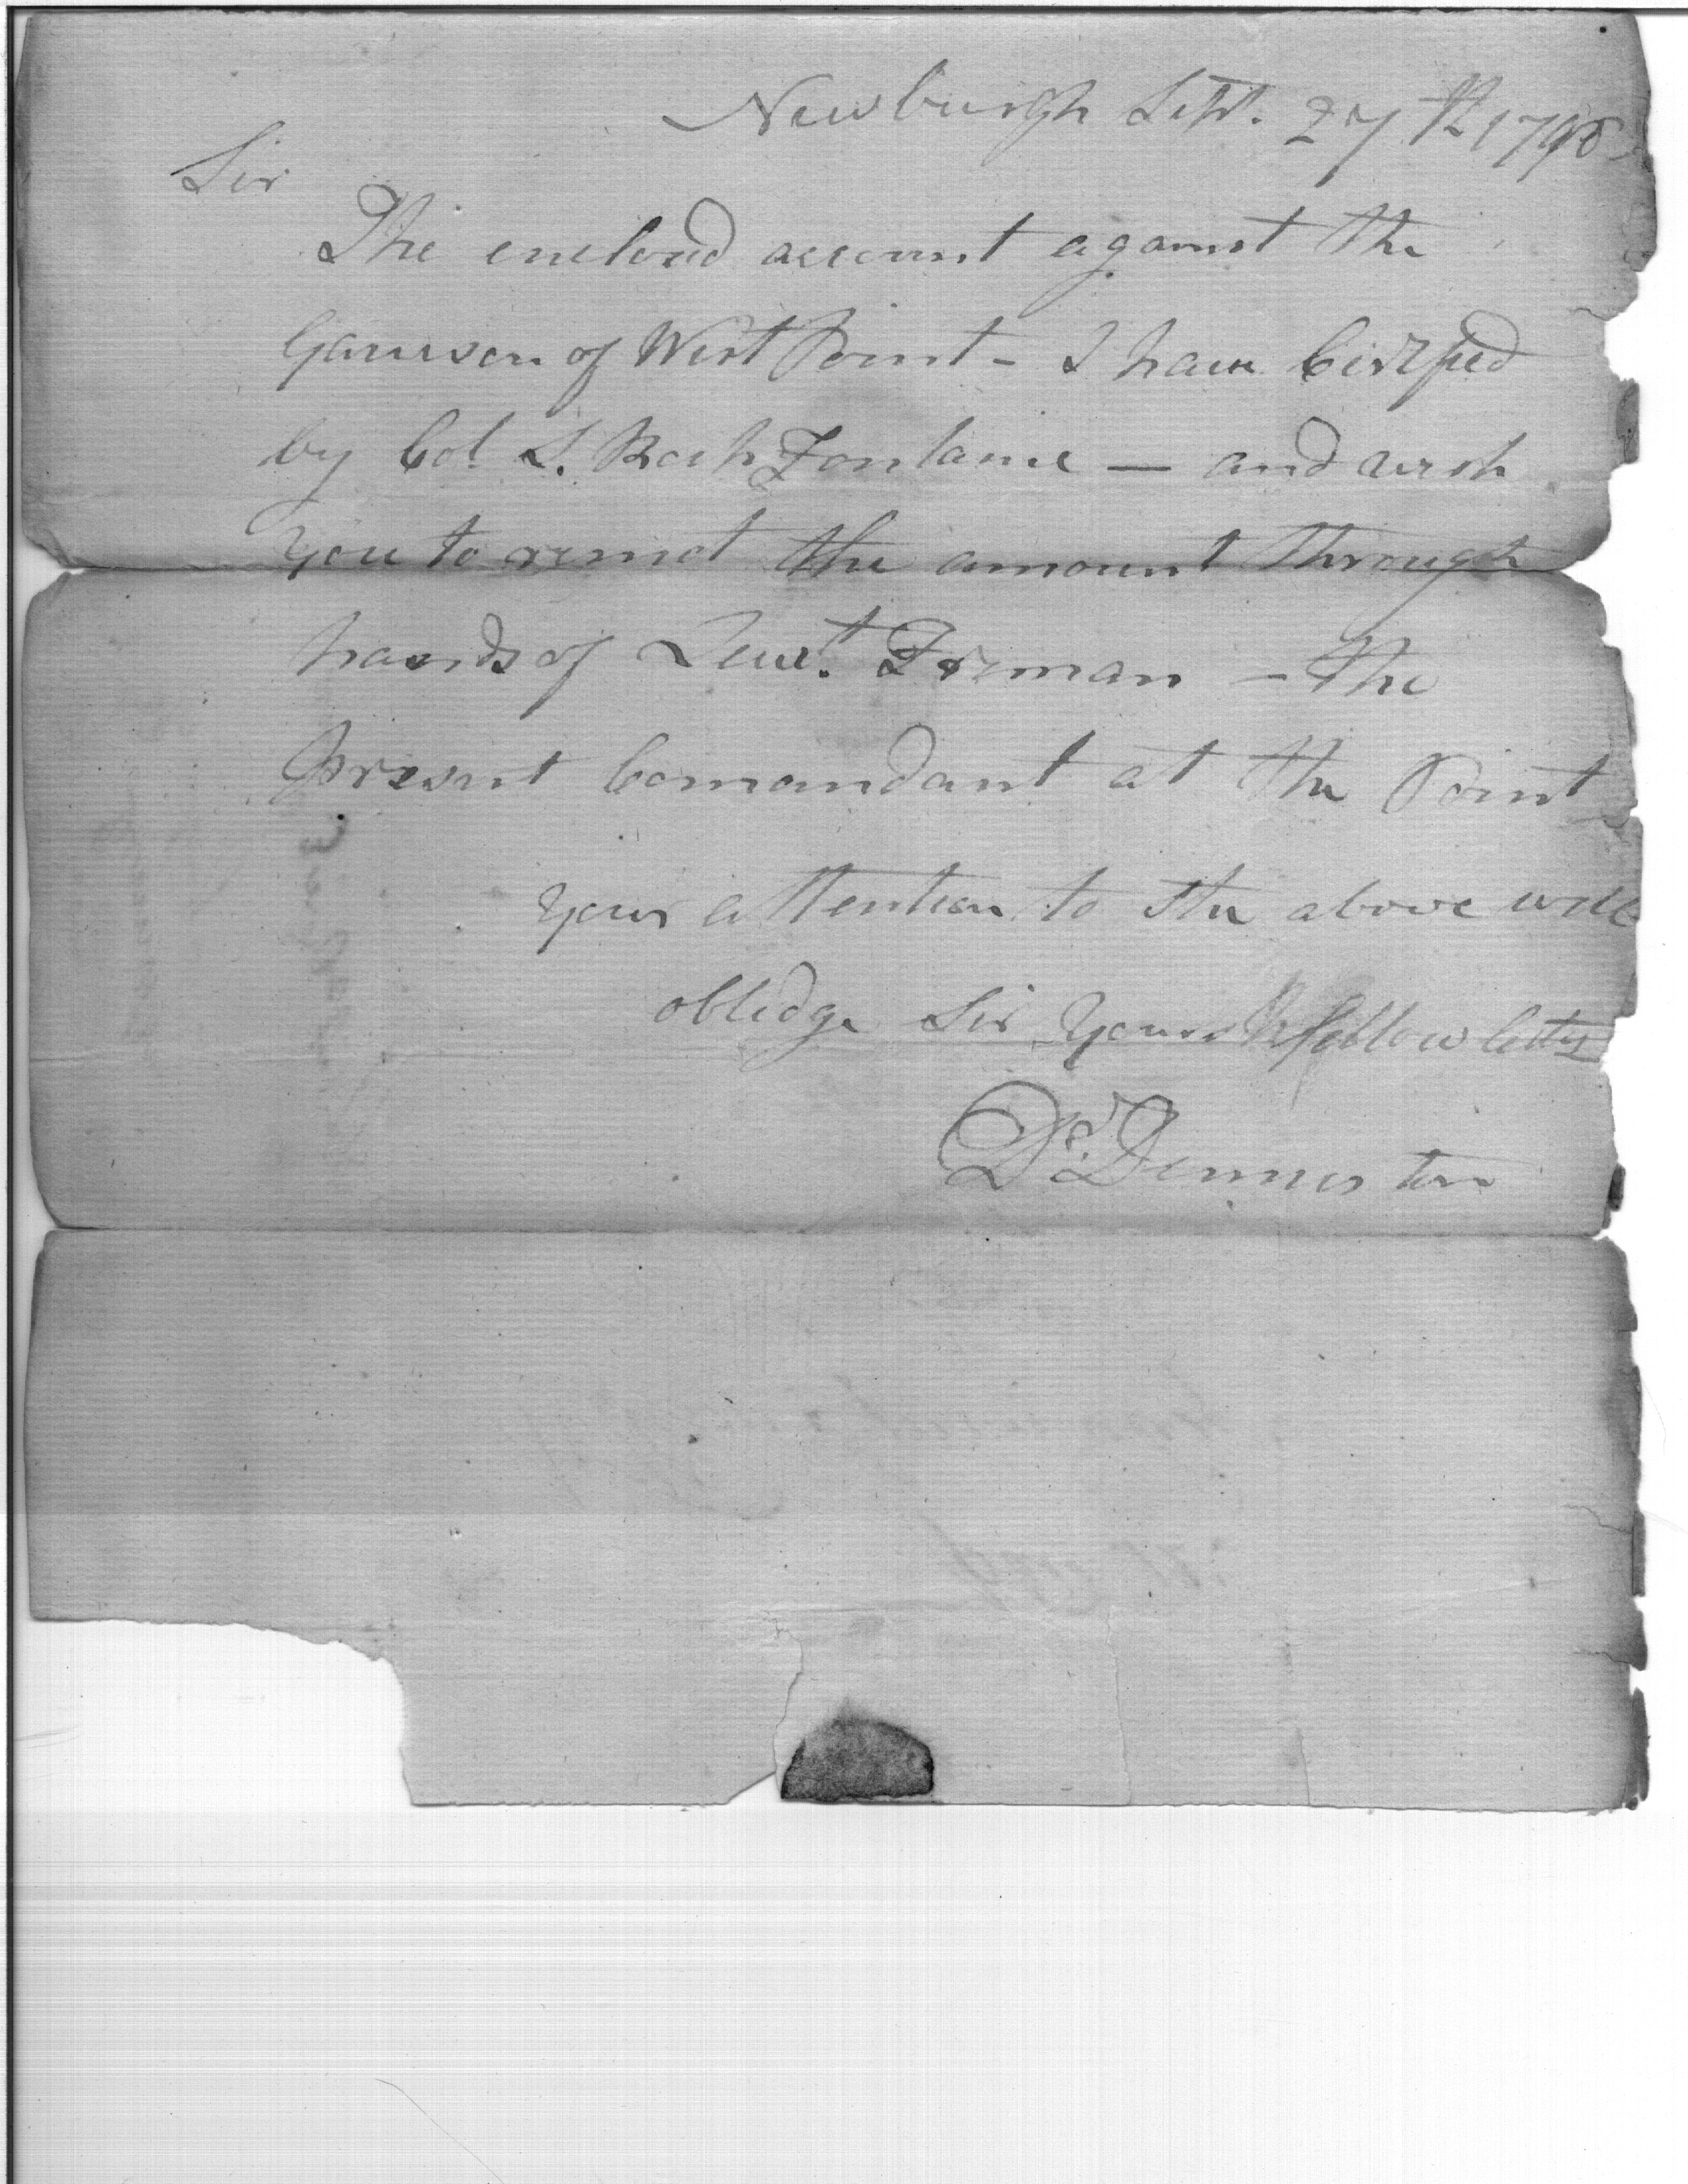 Newburgh Sept. 27th 179
Sir
The enclosd account against the
Garrison of West Point - I have
by Col. S. Roch Fontaine — and wish
you to remit the amount through
hands of Lieut. Freman - the
Present Comandant at the Point
your attention to the above will
oblidge Sir yours fellow
Dr. Denniston